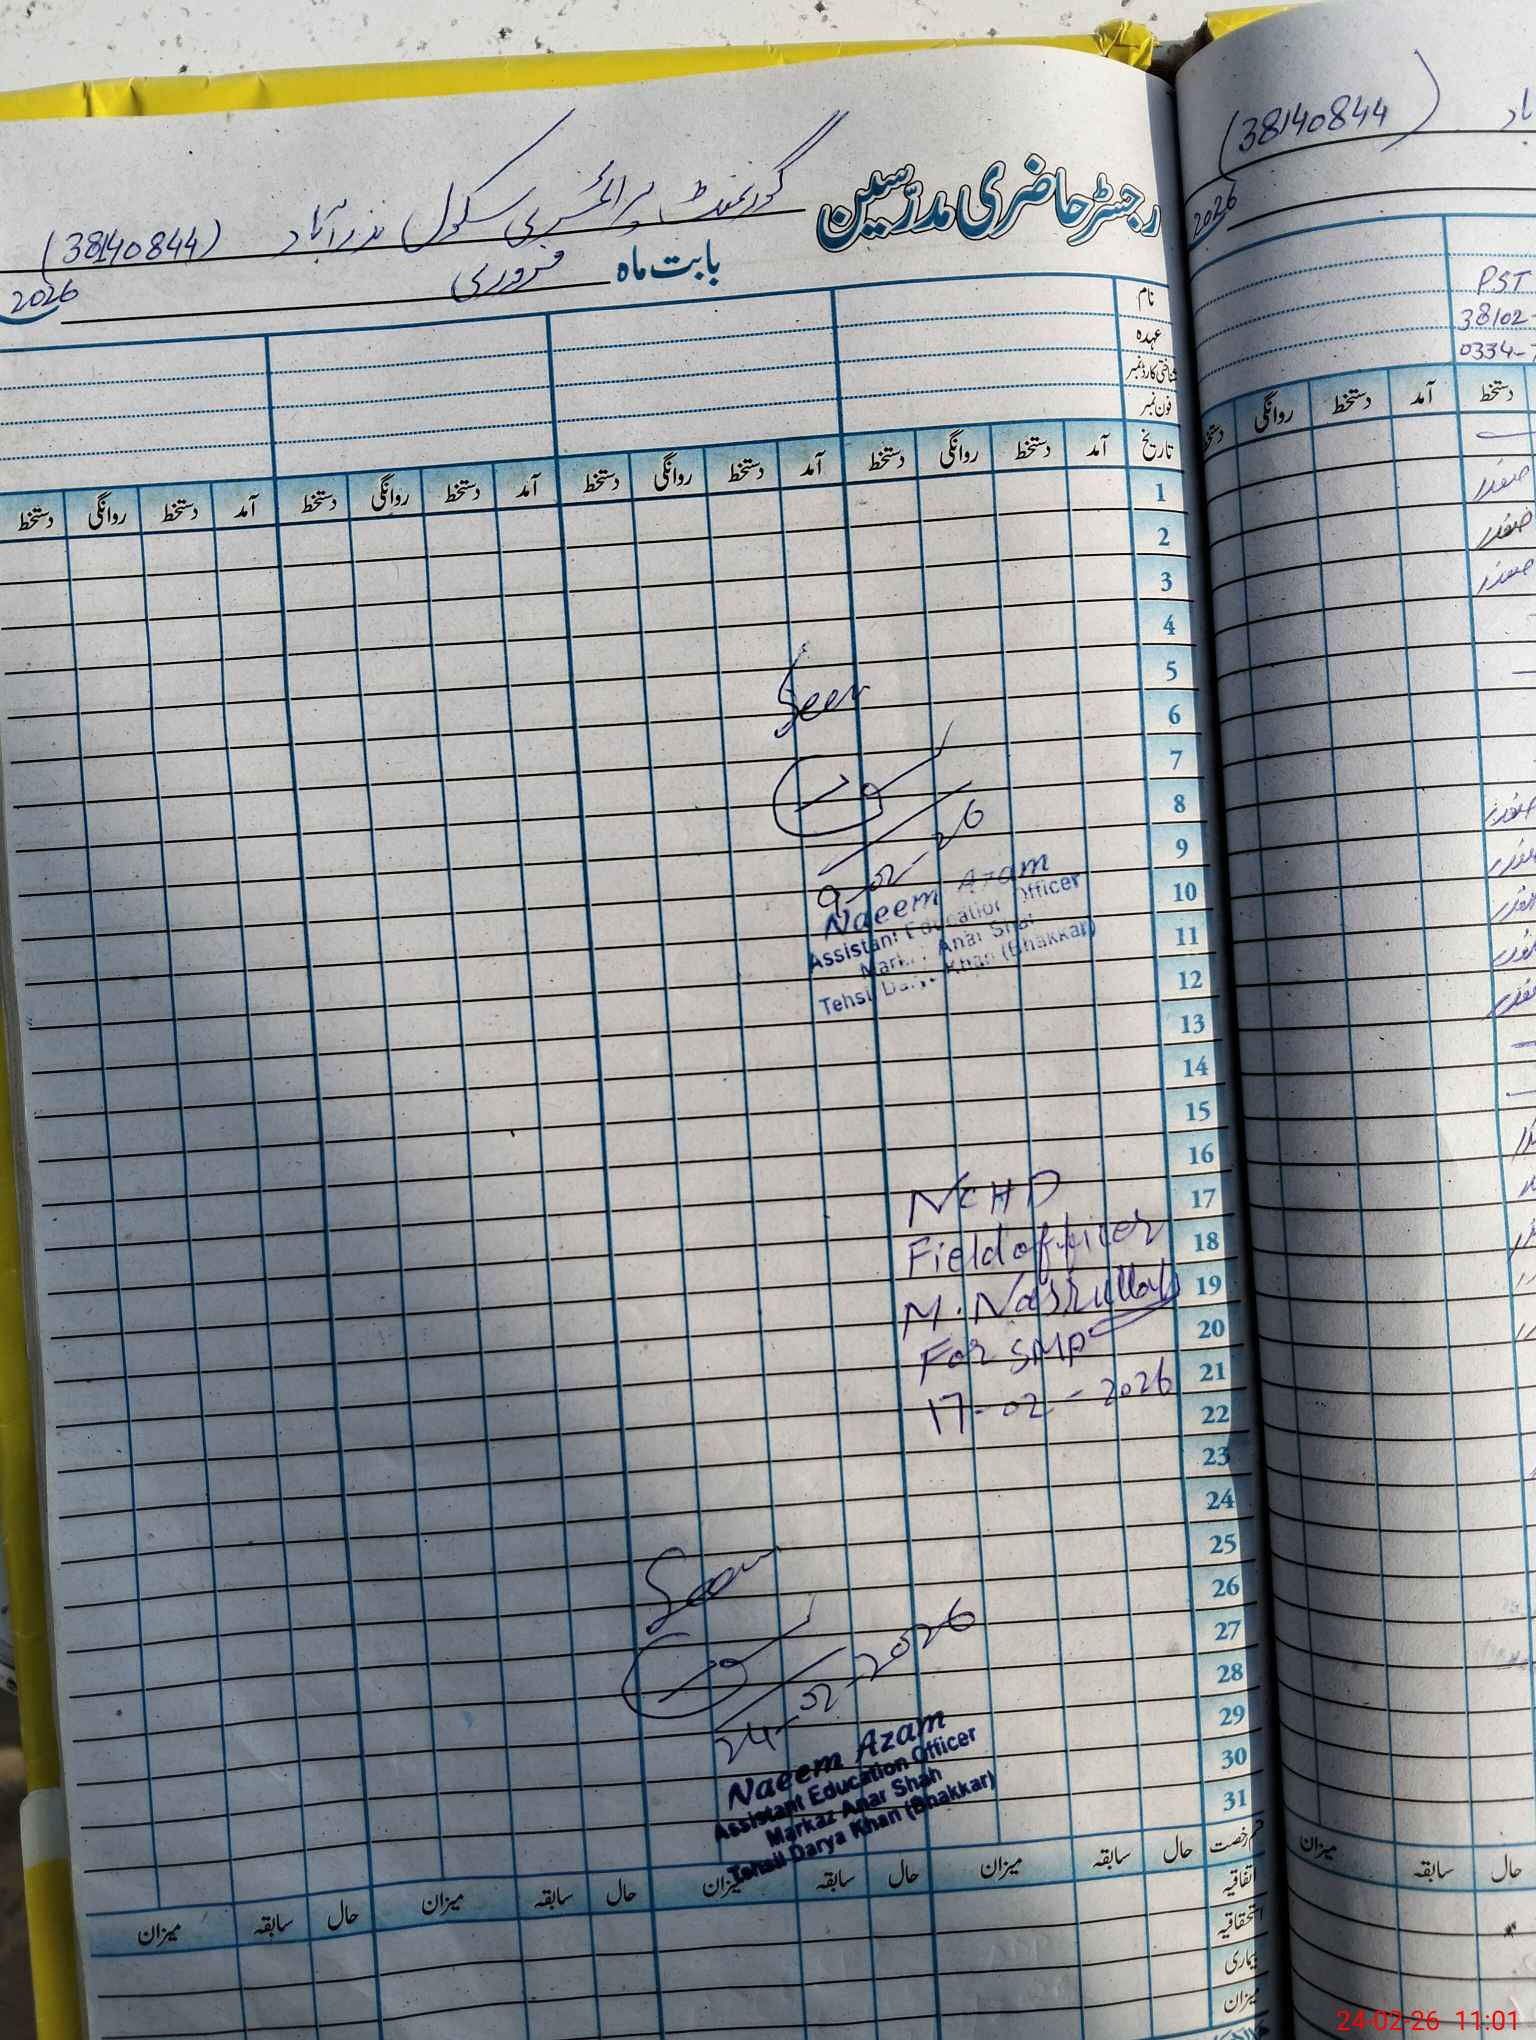 رجسٹر حاضری مدرّسین گورنمنٹ پرائمری سکول نذر آباد (38140844)
بابت ماہ فروری 2026
نام
عہدہ
شناختی کارڈ نمبر
فون نمبر
تاریخ آمد دستخط روانگی دستخط آمد دستخط روانگی دستخط آمد دستخط روانگی دستخط آمد دستخط روانگی دستخط
1
2
3
4
5
6
7
8
9
10
11
12
13
14
15
16
17
18
19
20
21
22
23
24
25
26
27
28
29
30
31
Seen
9-02-26
Naeem Azam
Assistant Education Officer
Markaz Anar Shah
Tehsil Darya Khan (Bhakkar)
NCHD
Field officer
M. Nasrullah
For SMP
17-02-2026
Seen
24-02-2026
Naeem Azam
Assistant Education Officer
Markaz Anar Shah
Tehsil Darya Khan (Bhakkar)
قسم رخصت حال سابقہ میزان حال سابقہ میزان حال سابقہ میزان حال سابقہ میزان
اتفاقیہ
استحقاقیہ
بیماری
میزان
(38140844)
2026
PST
38102-
0334-
دستخط آمد دستخط روانگی دستخط
صفدر
صفدر
صفدر
حال سابقہ میزان
24-02-26 11:01